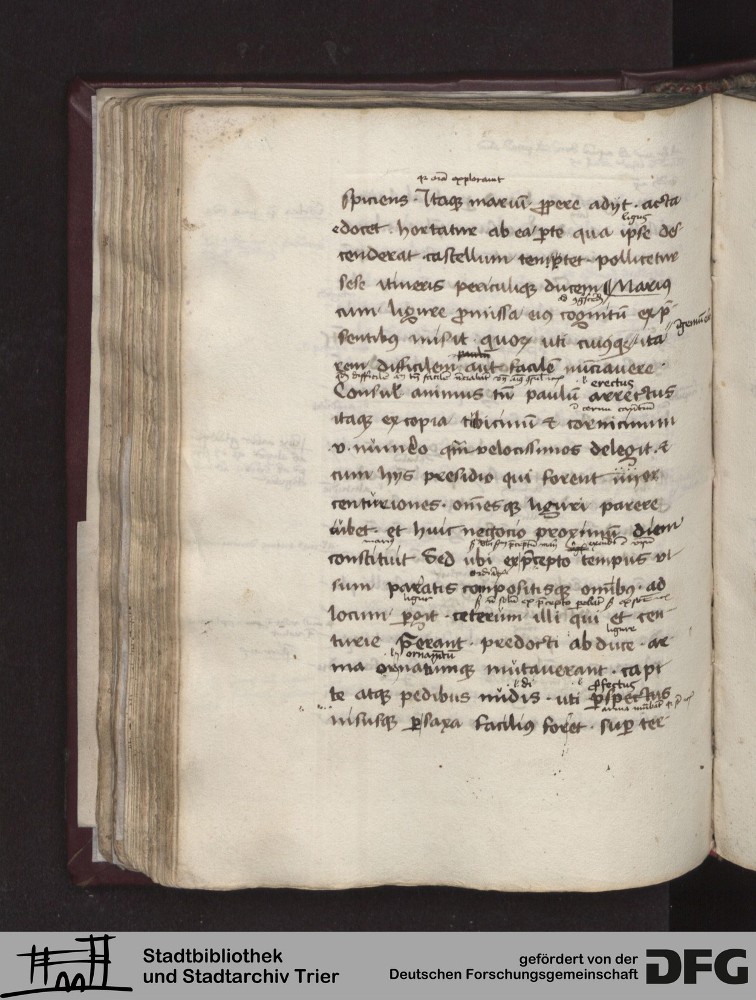 spiciens. Itaq mariū ꝓpere adijt. acta
edocet. hortatur ab ea ꝑte qua ipse des
ligus
cenderat castellum temptet. pollicetur
sese itineris periculiq ducem Marius
cum ligure ꝓmissa eius cognitū ex p̄
sentibus misit. quoꝝ uti cuiusq ita
rem difficilem aut facilē nūciauere.
l erectus
Consulꝭ animus tn̄ paulū arrectus
itaq ex copia tibicinū & cornicinum
v. numero qm̄ velocissimos delegit. &
cum hys presidio qui forent iiijor
centuriones. om̄esq liguri parere
iubet. et huic negocio proximū diem
constituit Sed ubi ex p̄cepto tempus vi
sum paratis compositisq om̄ibus. ad
ligur
locum ꝑgit. ceterum illi qui et cen
ligure
turie p̄erant. predocti ab duce. ar
ma ornatumq mutauerant. capi
te atq pedibus nudis. uti ꝑspectus
nisusq ꝑ saxa facilius foret. suꝑ ter
Stadtbibliothek
und Stadtarchiv Trier
gefördert von der
Deutschen Forschungsgemeinschaft
DFG